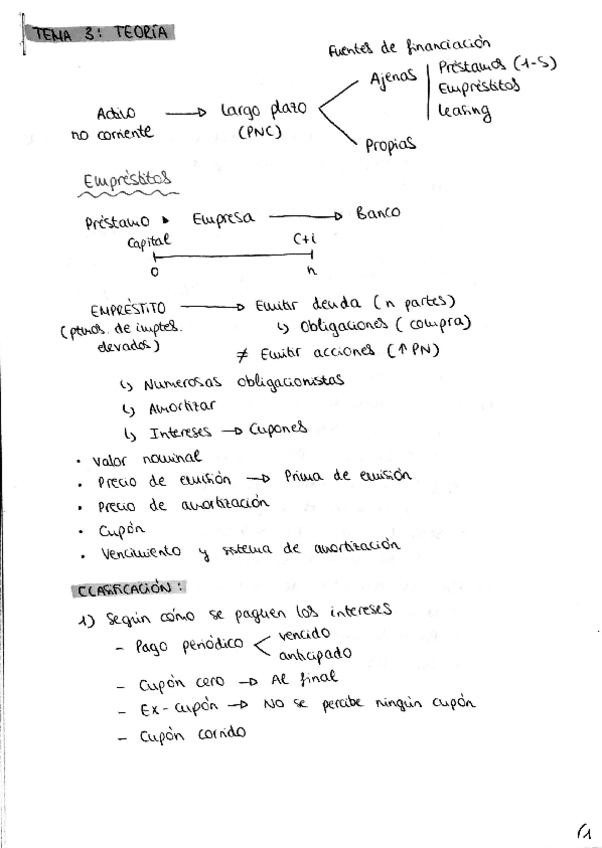 TEMA 3: TEORÍA
Fuentes de financiación
Activo no corriente → Largo plazo (PNC)
Ajenas
Préstamos (1-S)
Empréstitos
Leasing
Propias
Empréstitos
Préstamo • Empresa → Banco
Capital C+i
0 n
EMPRÉSTITO → Emitir deuda (n partes)
(ptmos. de imptes. elevados)
↳ Obligaciones (compra)
≠ Emitir acciones (↑PN)
↳ Numerosas obligacionistas
↳ Amortizar
↳ Intereses → Cupones
• Valor nominal
• Precio de emisión → Prima de emisión
• Precio de amortización
• Cupón
• Vencimiento y sistema de amortización
CLASIFICACIÓN:
1) Según cómo se paguen los intereses
- Pago periódico < vencido
anticipado
- Cupón cero → Al final
- Ex-cupón → No se percibe ningún cupón
- Cupón corrido